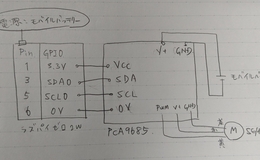 電源:モバイルバッテリー
Pin GPIO
1 3.3V
3 SDA0
5 SCL0
6 0V
ラズパイゼロ2W
Vcc
SDA
SCL
0V
PCA9685
V+ GND
PWM V+ GND
M